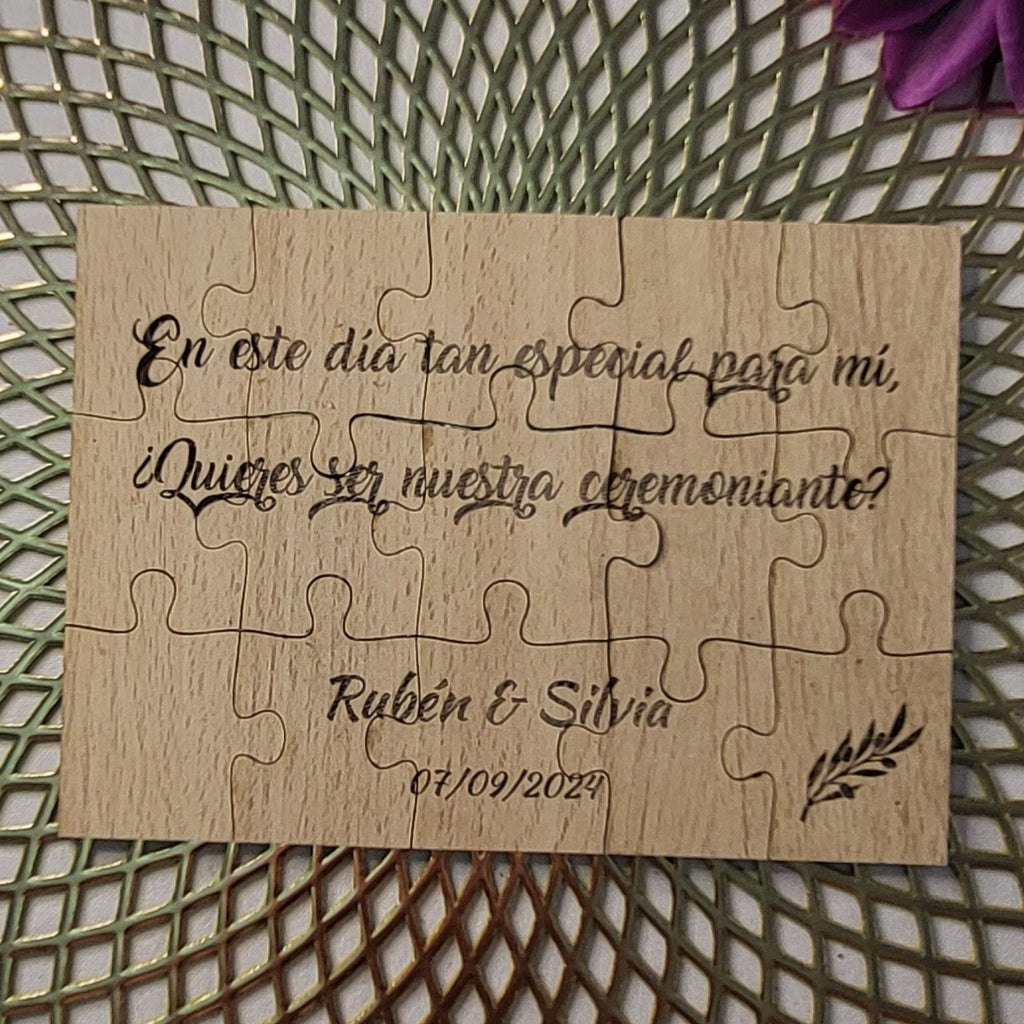 En este día tan especial para mí,
¿Quieres ser nuestra ceremoniante?
Rubén & Silvia
07/09/2024